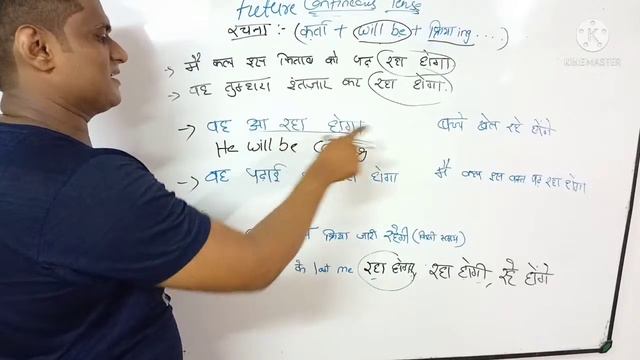 Future Continuous Tense
रचना :- (कर्ता + will be + क्रिया ing ...)
→ मैं कल इस किताब को पढ़ रहा होगा
→ वह तुम्हारा इंतजार कर रहा होगा.
→ वह आ रहा होगा
He will be
बच्चे खेल रहे होंगे
→ वह पढ़ाई होगा
मैं कल इस वक्त पढ़ रहा होगा
क्रिया जारी रहेगी (किसी समय)
के last me रहा होगा, रहा होगी, रहे होंगे
KINEMASTER